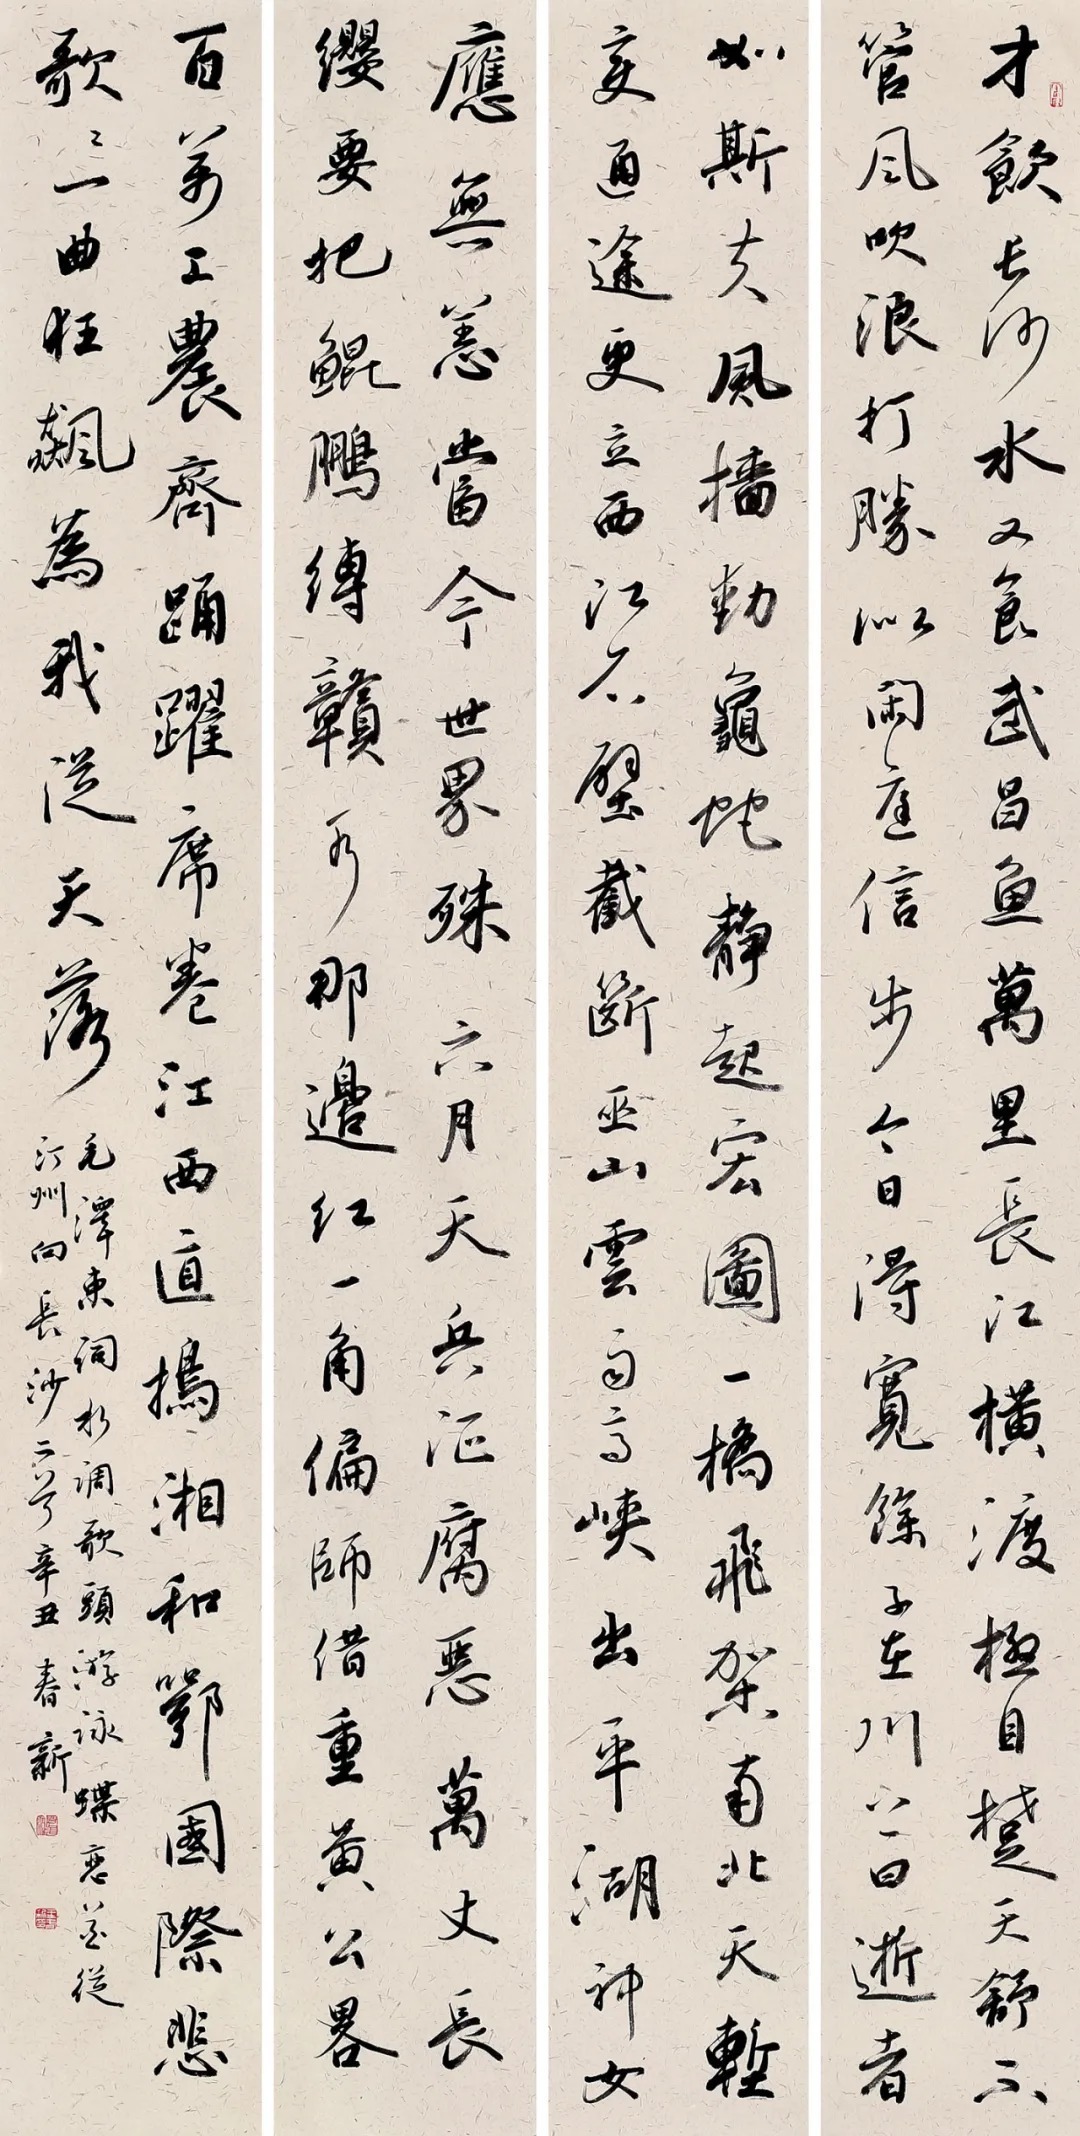 才飲長沙水又食武昌魚萬里長江橫渡極目楚天舒不
管風吹浪打勝似閑庭信步今日得寬餘子在川上曰逝者
如斯夫風檣動龜蛇靜起宏圖一橋飛架南北天塹
変通途更立西江石壁截斷巫山雲雨高峽出平湖神女
應無恙當今世界殊六月天兵征腐惡萬丈長
纓要把鯤鵬縛贛水那邊紅一角偏師借重黄公畧
百萬工農齊踴躍席卷江西直搗湘和鄂國際悲
歌〻一曲狂飆為我從天落
毛澤東詞水調歌頭游泳蝶恋花從
汀州向長沙二首辛丑春新